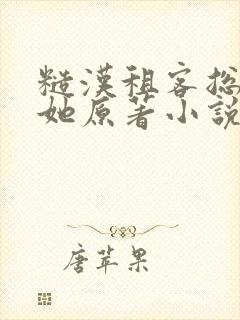 糙漢租客總
她原著小說
唐苹果